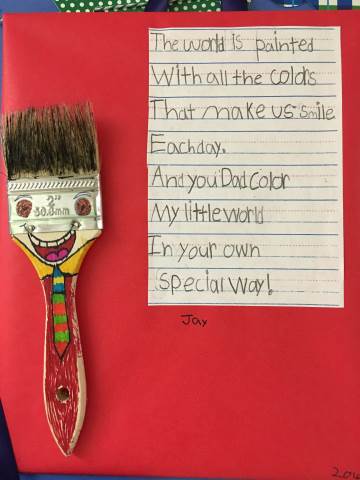 The world is painted
With all the colors
That make us smile
Each day.
And you Dad color
My little world
In your own
special way!
Jay
2"
50.8mm